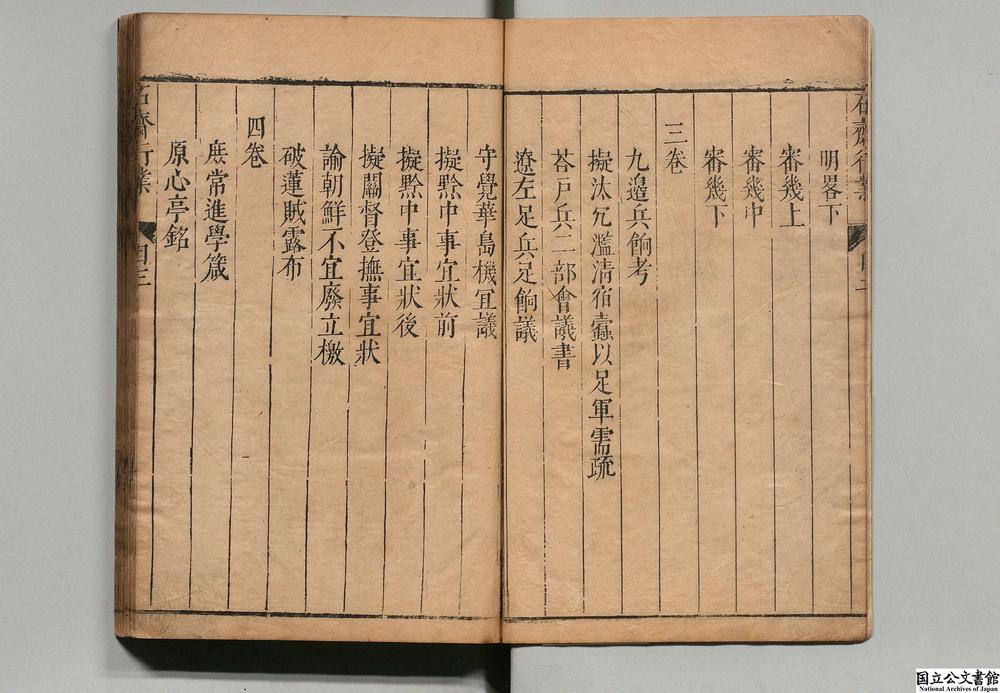 石齋行業 目二
明畧下
審幾上
審幾中
審幾下
三卷
九邉兵餉考
擬汰冗濫清宿蠹以足軍需疏
荅戸兵二部會議書
遼左足兵足餉議
守覺華島機冝議
擬黔中事宜狀前
擬黔中事宜狀後
擬關督登撫事宜狀
論朝鮮不宜廢立檄
破蓮賊露布
四卷
庶常進學箴
原心亭銘
石齋行業 目三
国立公文書館
National Archives of Japan